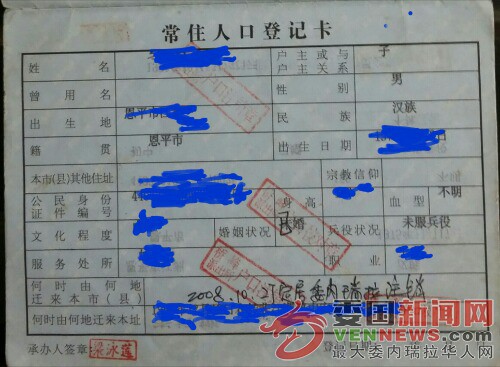 常住人口登记卡
姓名
户主或与户主关系 子
曾用名
性别 男
出生地 恩平市
民族 汉族
籍贯 恩平市
出生日期
本市(县)其他住址
宗教信仰
公民身份证件编号 44
身高
血型 不明
文化程度
婚姻状况 已婚
兵役状况 未服兵役
服务处所
职业
何时由何地迁来本市(县) 2008.10.
定居委内瑞拉注销
何时由何地迁来本址
承办人签章 梁冰莲
登记日期
委国新闻网
VENNEWS.COM
最大委内瑞拉华人网